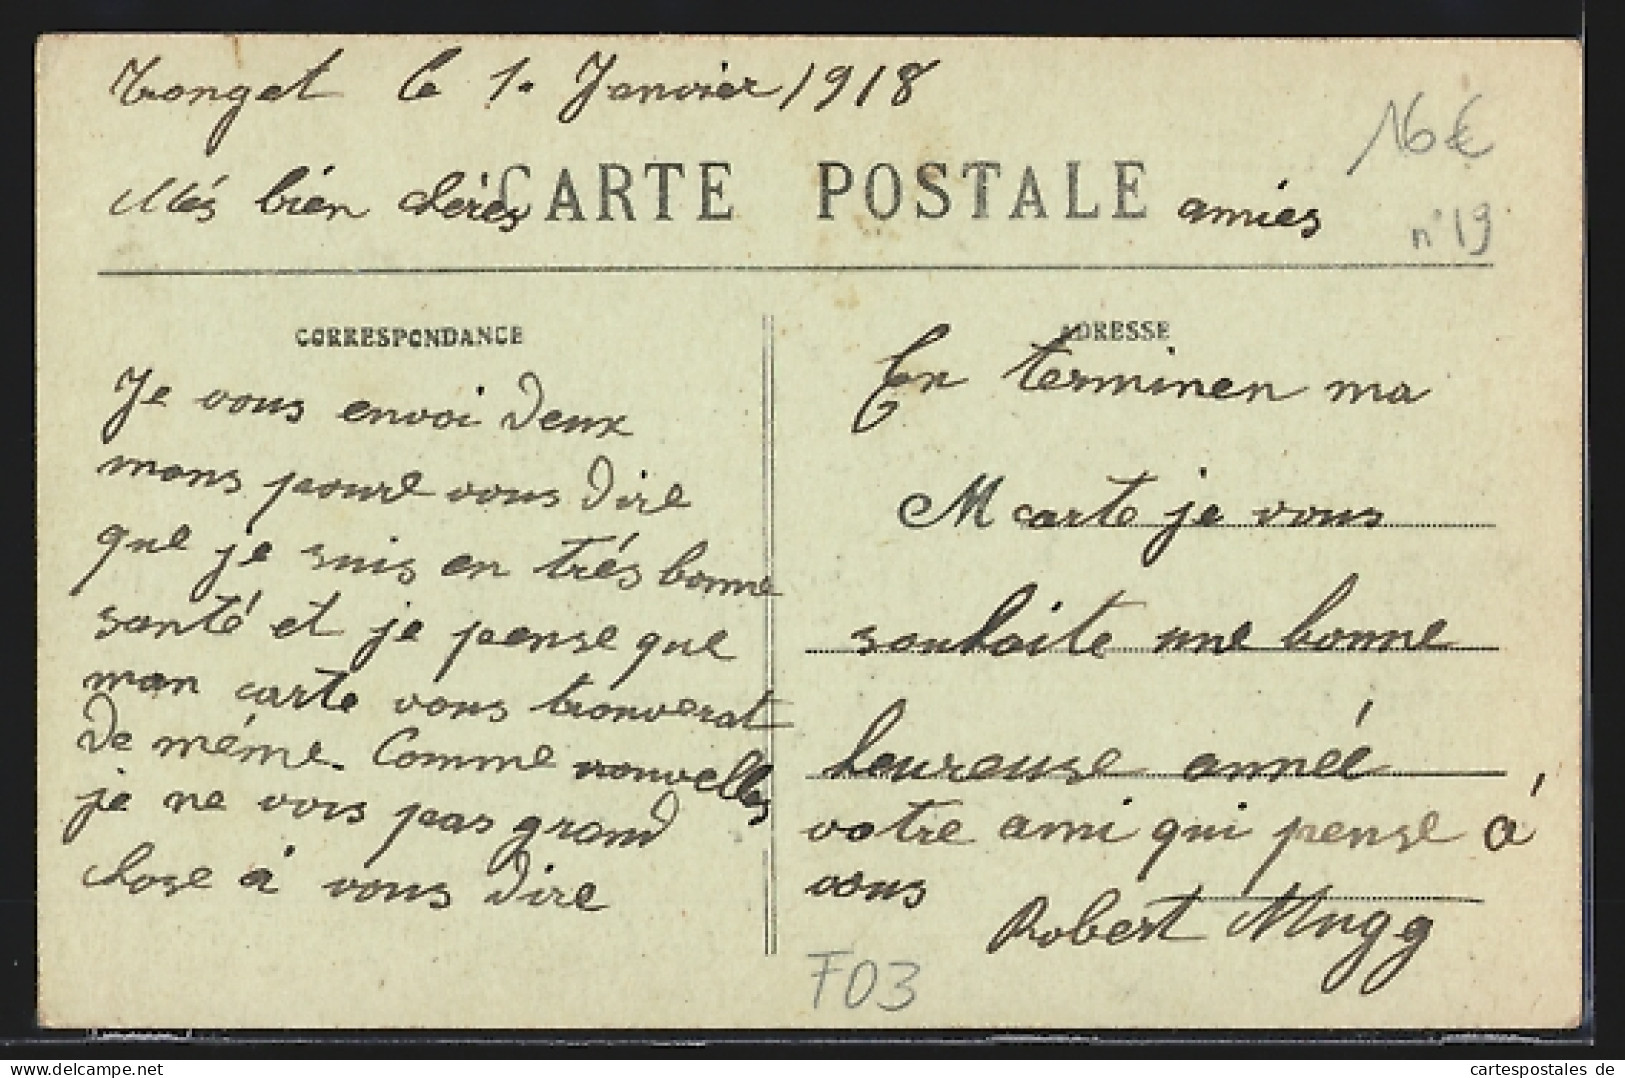 Tronget le 1. Janvier 1918
16 €
Més bién chéres CARTE POSTALE amies
n° 19
CORRESPONDANCE
Je vous envoi deux
mons poure vous dire
que je suis en trés bonne
santé et je pense que
mon carte vous trouverat
de méme. Comme nouvelles
je ne vois pas grand
chose à vous dire
ADRESSE
En terminen ma
M carte je vous
souhaite une bonne
heureuse année
votre ami qui pense à
vous
Robert Mugg
F03
cartespostales de